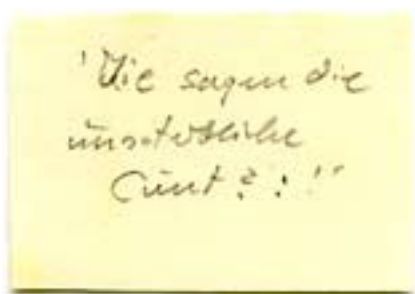 "Wie sagen die
unsterbliche
Cunt ? : !"